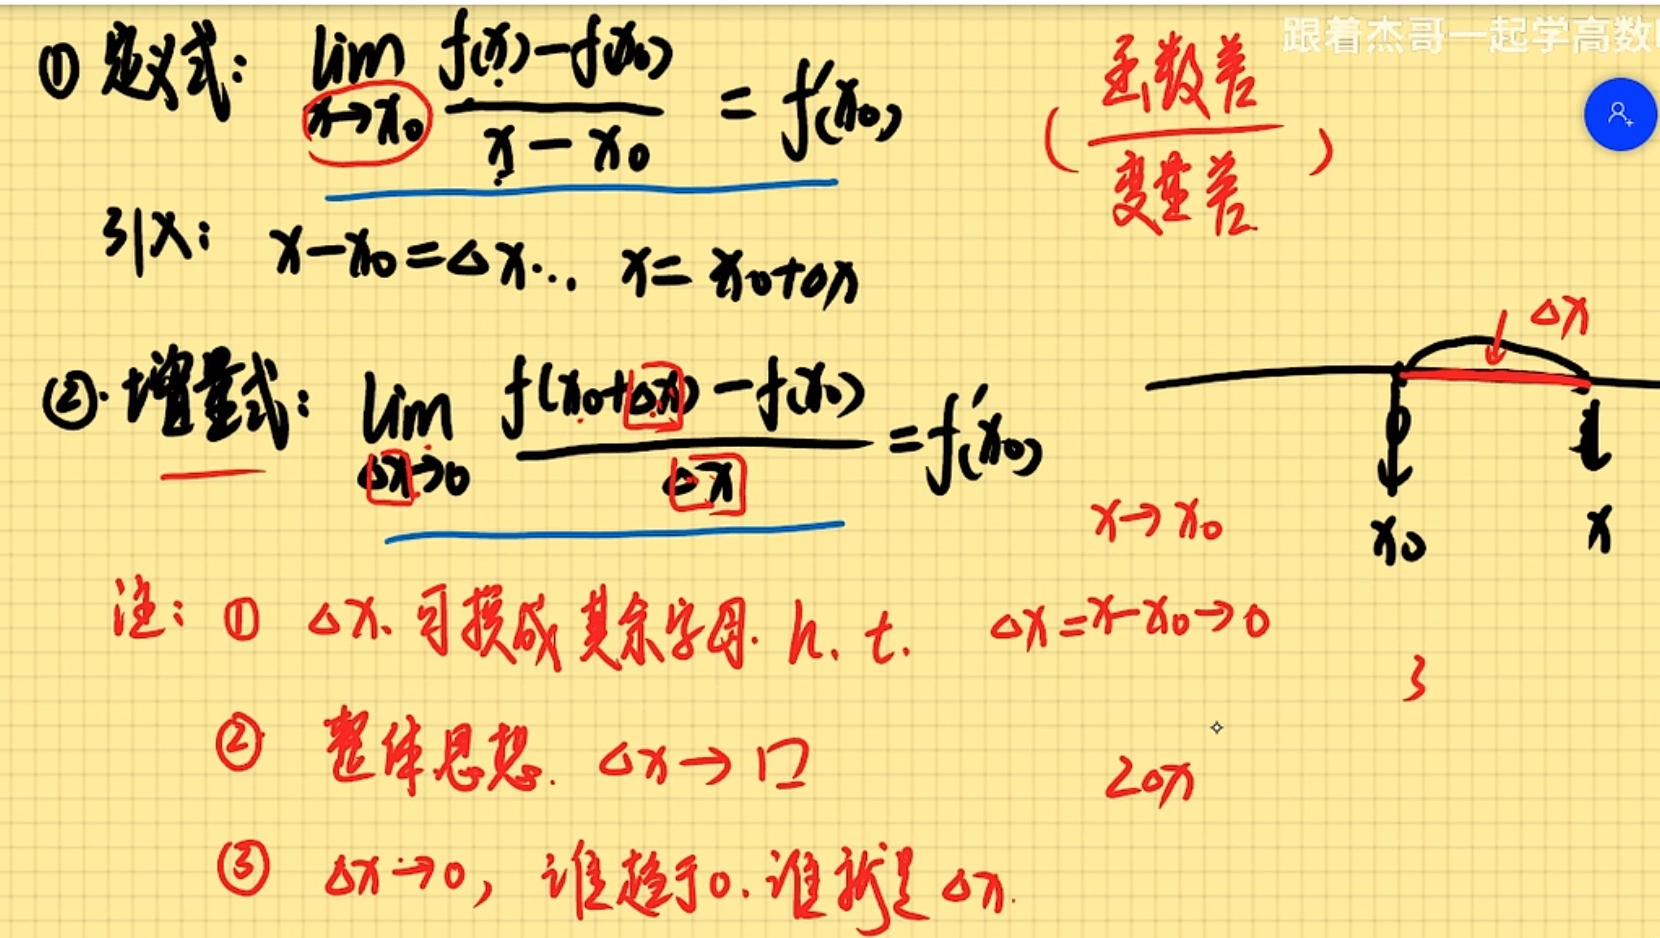 跟着杰哥一起学高数
① 定义式: lim x→x₀ (f(x)-f(x₀))/(x-x₀) = f'(x₀)
(函数差/变量差)
引入: x-x₀=Δx... x=x₀+Δx
Δx
②.增量式: lim Δx→0 (f(x₀+Δx)-f(x₀))/Δx =f'(x₀)
x→x₀
x₀ x
注: ① Δx.可换成其余字母. h. t. Δx=x-x₀→0
3
② 整体思想. Δx→口
2Δx
③ Δx→0, 谁趋于0.谁就是Δx.